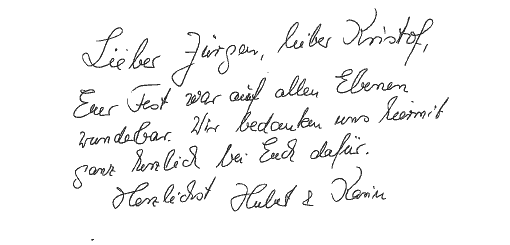 Lieber Jürgen, lieber Kristof,
Euer Fest war auf allen Ebenen
wunderbar. Wir bedanken uns hiermit
ganz herzlich bei Euch dafür.
Herzlichst Hubert & Karin